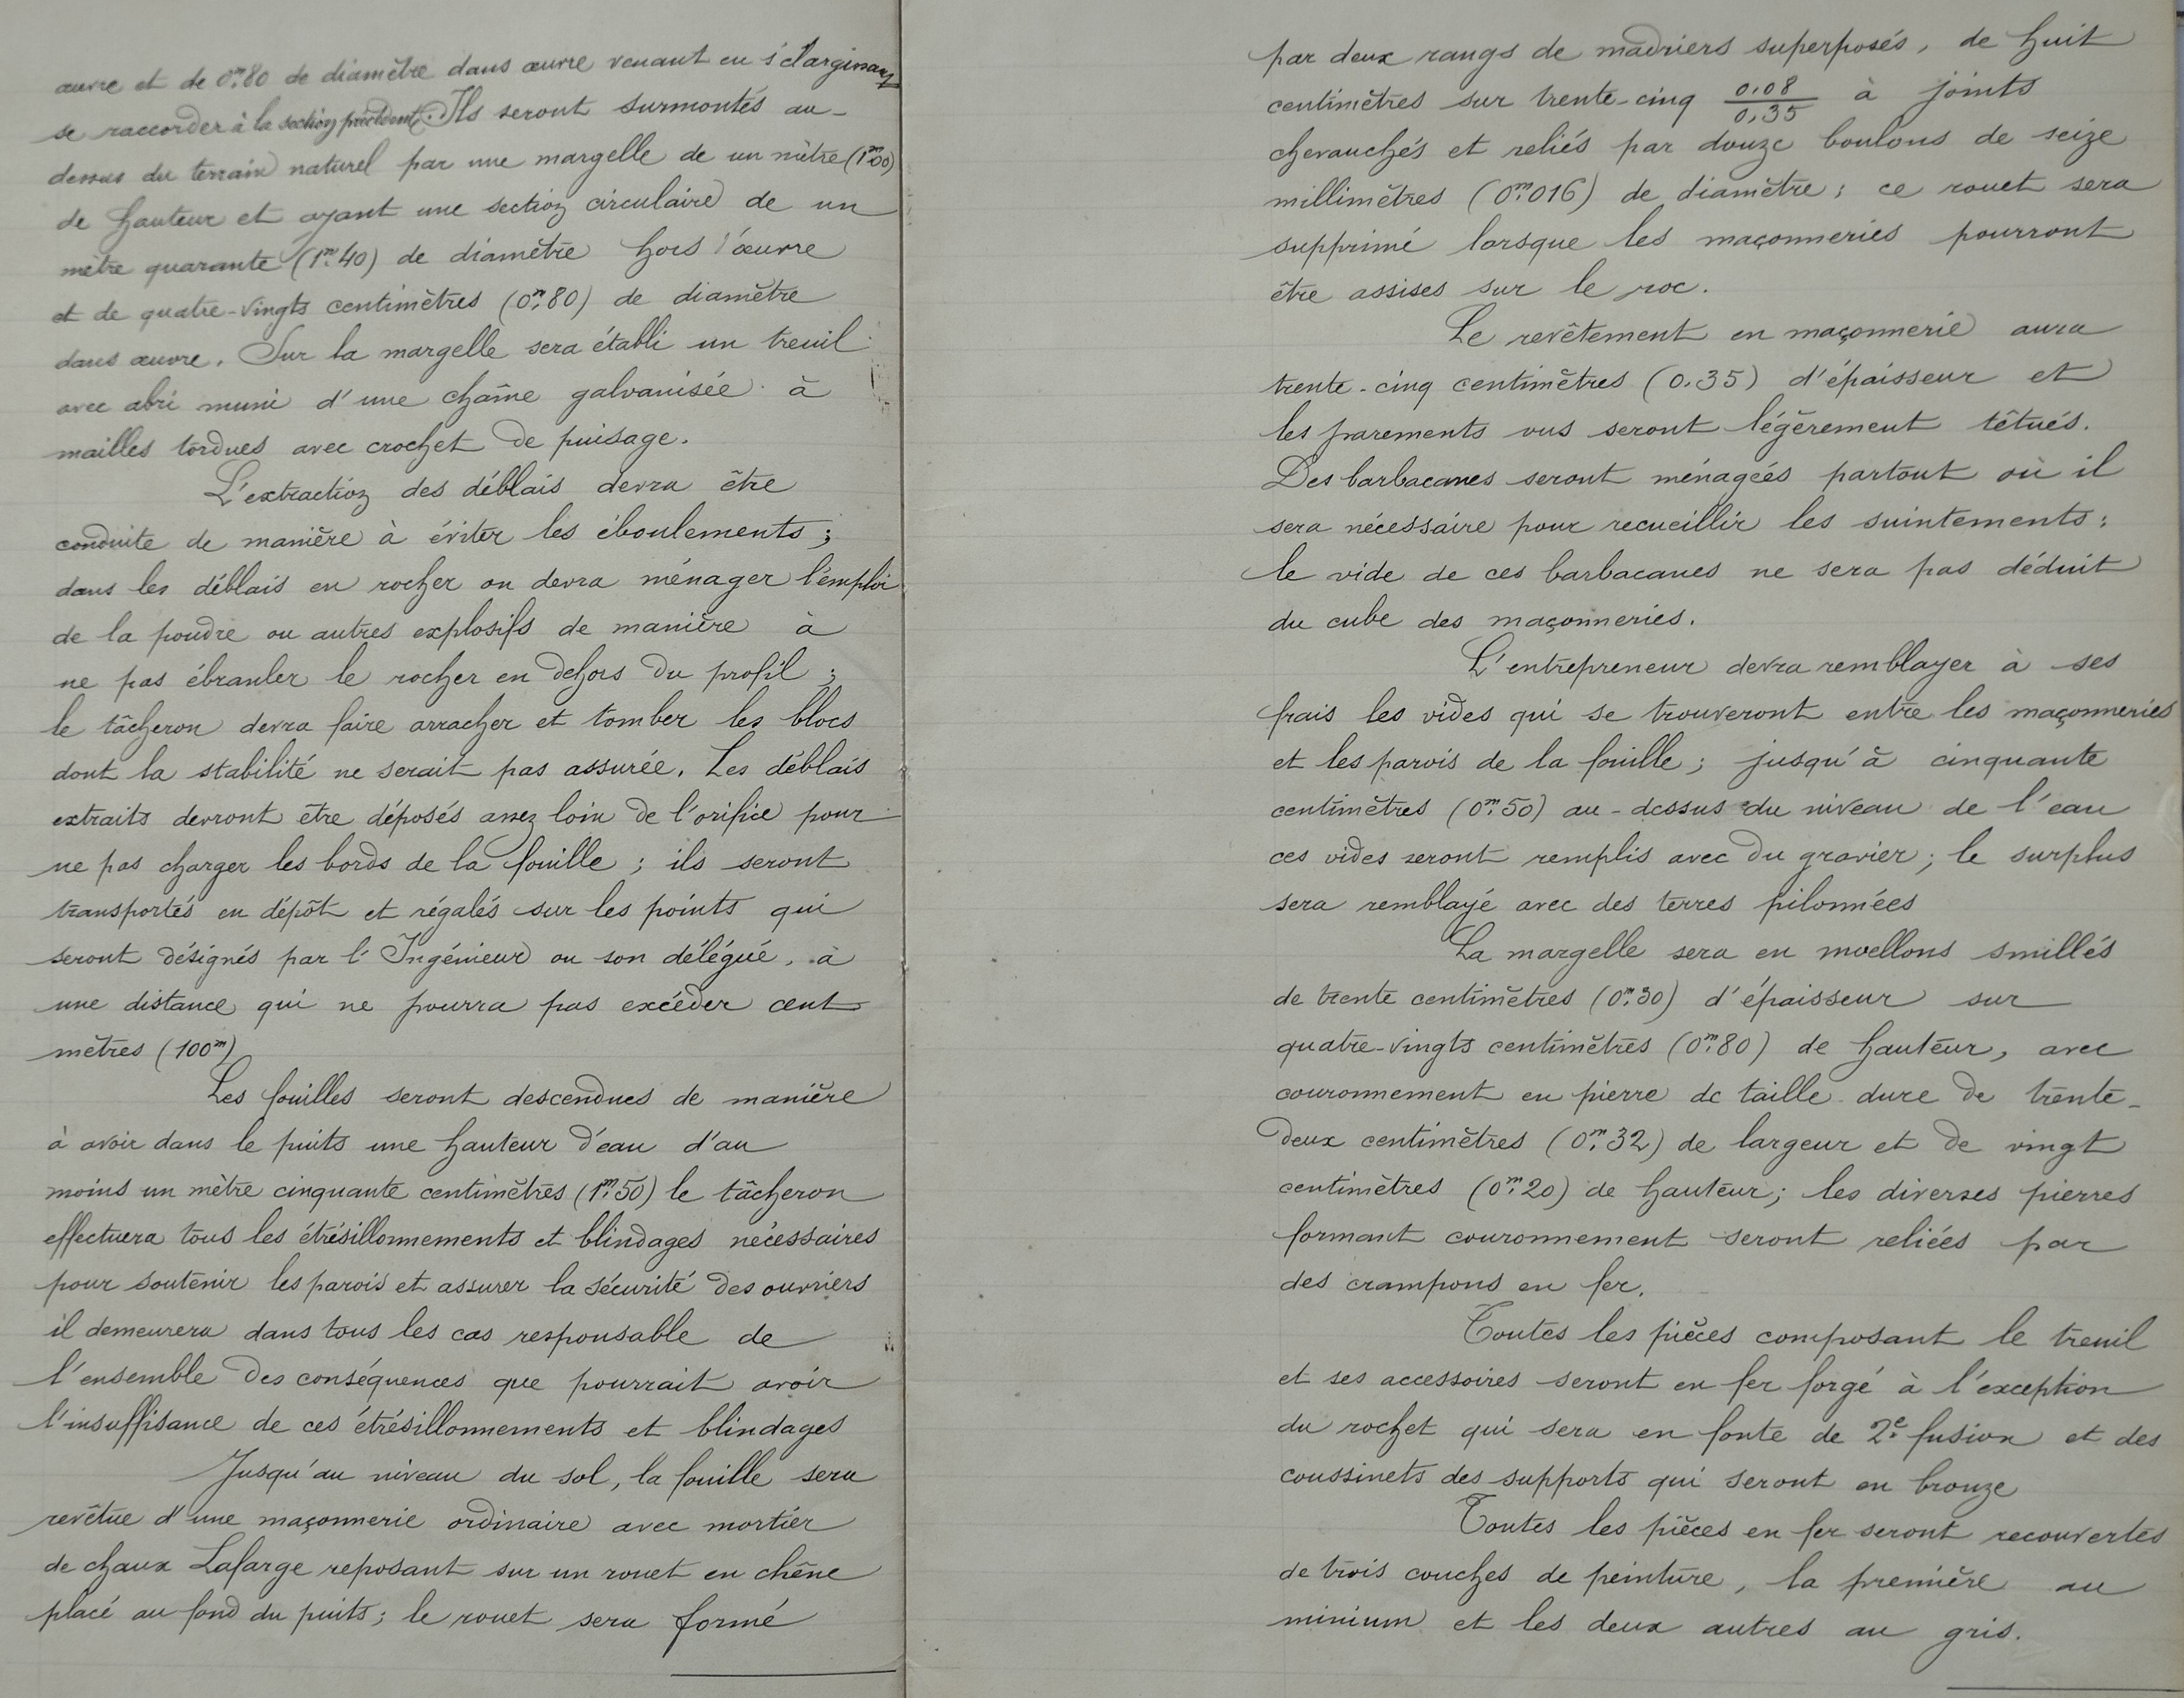 œuvre et de 0m.80 de diamètre dans œuvre venant en s'élargissant
se raccorder à la section précédente. Ils seront surmontés au-
dessus du terrain naturel par une margelle de un mètre (1m00)
de hauteur et ayant une section circulaire de un
mètre quarante (1m.40) de diamètre hors l'œuvre
et de quatre-vingts centimètres (0m.80) de diamètre
dans œuvre. Sur la margelle sera établi un treuil
avec abri muni d'une chaîne galvanisée à
mailles tordues avec crochet de puisage.
L'extraction des déblais devra être
conduite de manière à éviter les éboulements ;
dans les déblais en rocher on devra ménager l'emploi
de la poudre ou autres explosifs de manière à
ne pas ébranler le rocher en dehors du profil ;
le tâcheron devra faire arracher et tomber les blocs
dont la stabilité ne serait pas assurée. Les déblais
extraits devront être déposés assez loin de l'orifice pour
ne pas charger les bords de la fouille ; ils seront
transportés en dépôt et régalés sur les points qui
seront désignés par l'Ingénieur ou son délégué, à
une distance qui ne pourra pas excéder cent
mètres (100m)
Les fouilles seront descendues de manière
à avoir dans le puits une hauteur d'eau d'au
moins un mètre cinquante centimètres (1m.50) le tâcheron
effectuera tous les étrésillonnements et blindages nécessaires
pour soutenir les parois et assurer la sécurité des ouvriers
il demeurera dans tous les cas responsable de
l'ensemble des conséquences que pourrait avoir
l'insuffisance de ces étrésillonnements et blindages
Jusqu'au niveau du sol, la fouille sera
revêtue d'une maçonnerie ordinaire avec mortier
de chaux Lafarge reposant sur un rouet en chêne
placé au fond du puits ; le rouet sera formé
par deux rangs de madriers superposés, de huit
centimètres sur trente-cinq 0.08/0.35 à joints
chevauchés et reliés par douze boulons de seize
millimètres (0m.016) de diamètre ; ce rouet sera
supprimé lorsque les maçonneries pourront
être assises sur le roc.
Le revêtement en maçonnerie aura
trente-cinq centimètres (0.35) d'épaisseur et
les parements vus seront légèrement têtués.
Des barbacanes seront ménagées partout où il
sera nécessaire pour recueillir les suintements ;
le vide de ces barbacanes ne sera pas déduit
du cube des maçonneries.
L'entrepreneur devra remblayer à ses
frais les vides qui se trouveront entre les maçonneries
et les parois de la fouille ; jusqu'à cinquante
centimètres (0m.50) au-dessus du niveau de l'eau
ces vides seront remplis avec du gravier ; le surplus
sera remblayé avec des terres pilonnées
La margelle sera en moellons smillés
de trente centimètres (0m.30) d'épaisseur sur
quatre-vingts centimètres (0m.80) de hauteur, avec
couronnement en pierre de taille dure de trente-
deux centimètres (0m.32) de largeur et de vingt
centimètres (0m.20) de hauteur ; les diverses pierres
formant couronnement seront reliées par
des crampons en fer.
Toutes les pièces composant le treuil
et ses accessoires seront en fer forgé à l'exception
du rochet qui sera en fonte de 2e fusion et des
coussinets des supports qui seront en bronze
Toutes les pièces en fer seront recouvertes
de trois couches de peinture, la première au
minium et les deux autres au gris.